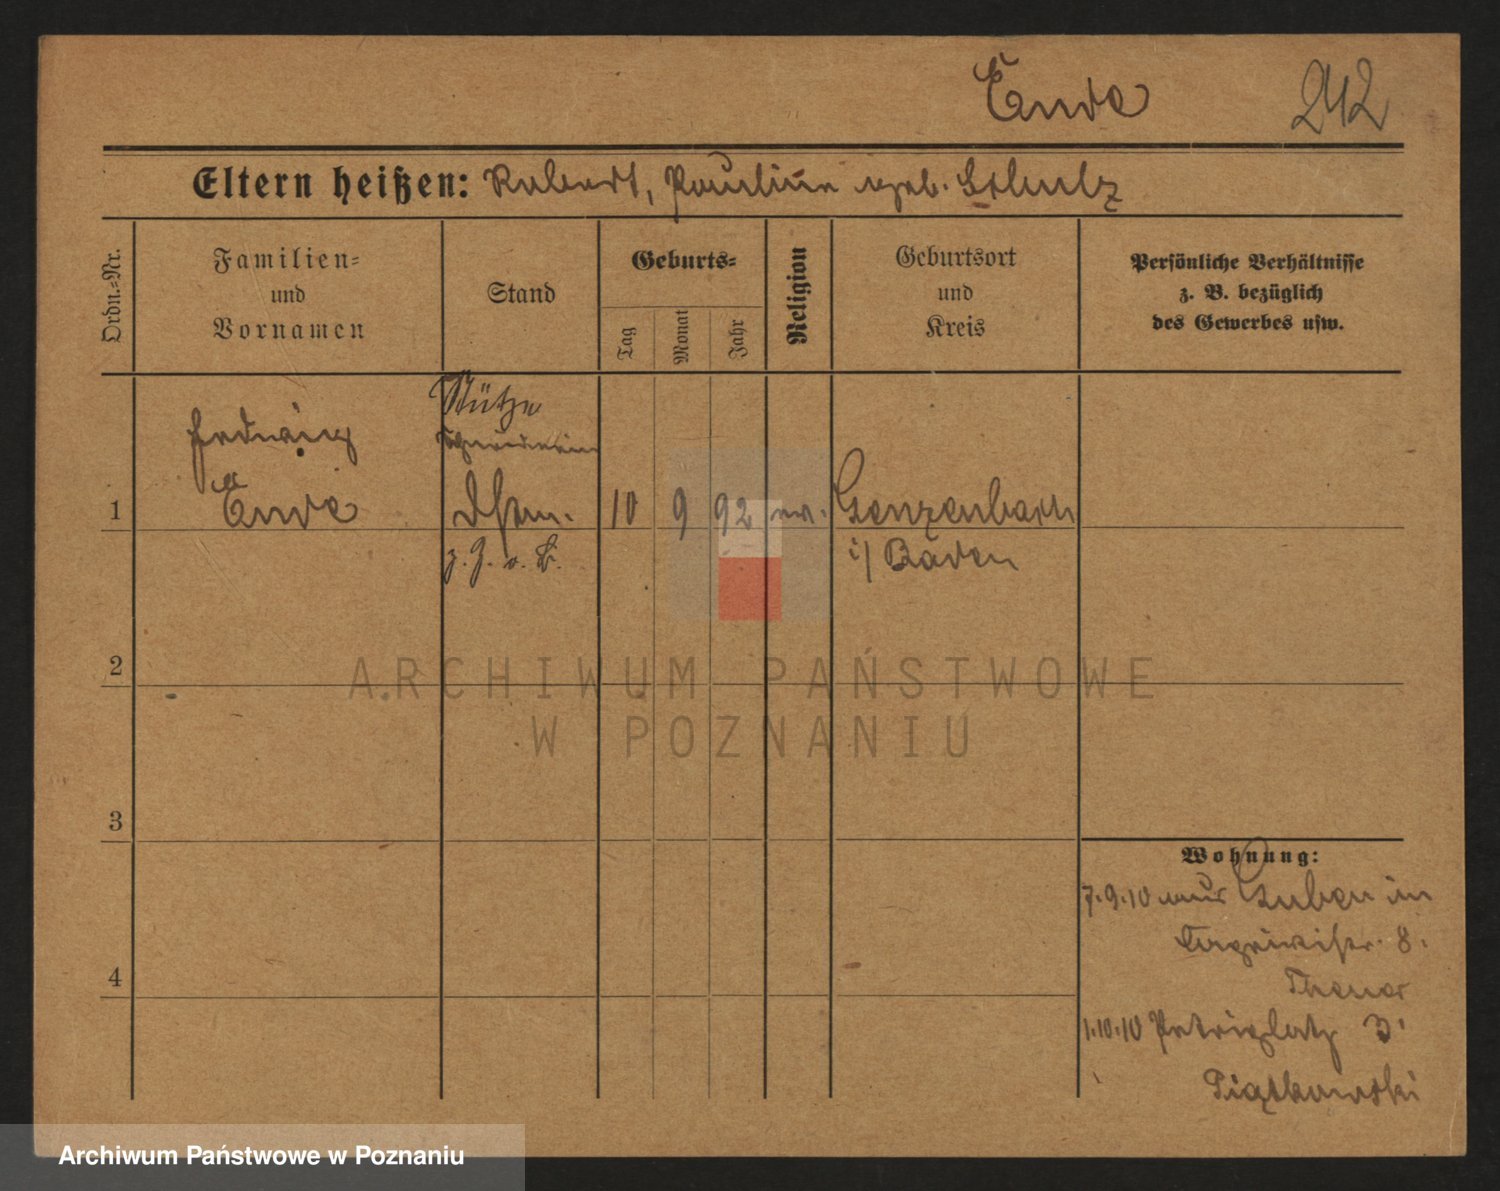 Ende 242
Eltern heißen: Robert, Pauline geb. Schulz
Ordn.=Nr.
Familien=
und
Vornamen
Stand
Geburts=
Tag
Monat
Jahr
Religion
Geburtsort
und
Kreis
Persönliche Verhältnisse
z. B. bezüglich
des Gewerbes usw.
Stütze
Hedwig
1 Ende 10 9 92 ev. Genzenbach
i/ Baden
2
3
4
Wohnung:
7.9.10 aus Guben in
8
1.10.10 Petriplatz 3
Piątkowski
ARCHIWUM PAŃSTWOWE
W POZNANIU
Archiwum Państwowe w Poznaniu